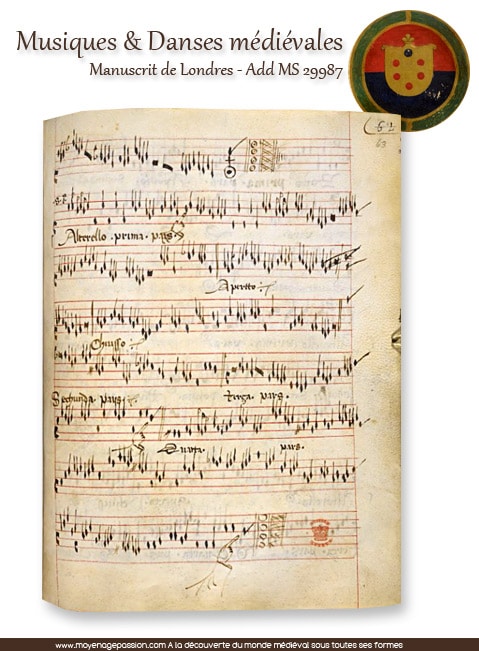 Musiques & Danses médiévales
Manuscrit de Londres - Add MS 29987
63
Alterello . prima . pars
Aperto
Chiusso
Sechunda . pars
Terza . pars
Quarta . pars
www.moyenagepassion.com A la découverte du monde médiéval sous toutes ses formes